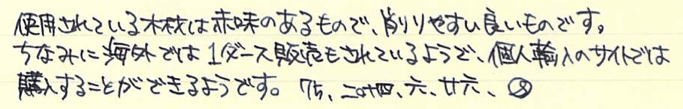 使用されている木材は赤味のあるもので、削りやすい良いものです。
ちなみに海外では1ダース販売もされているようで、個人輸入のサイトでは
購入することができるようです。 75、二十四、六、廿六、